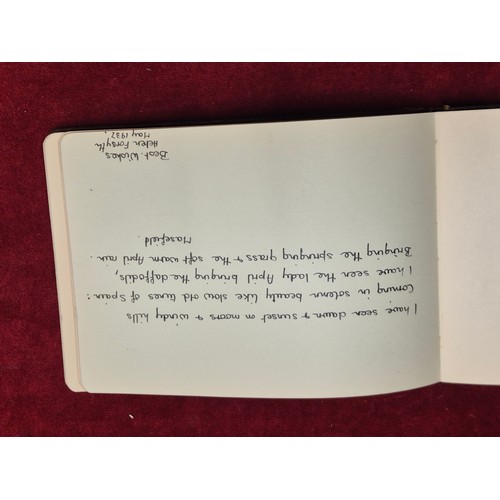 I have seen dawn & sunset on moors & windy hills
Coming in solemn beauty like slow old tunes of Spain:
I have seen the lady April bringing the daffodils,
Bringing the springing grass & the soft warm April rain.
Masefield.
Best Wishes
Helen Forsyth
May 1932.